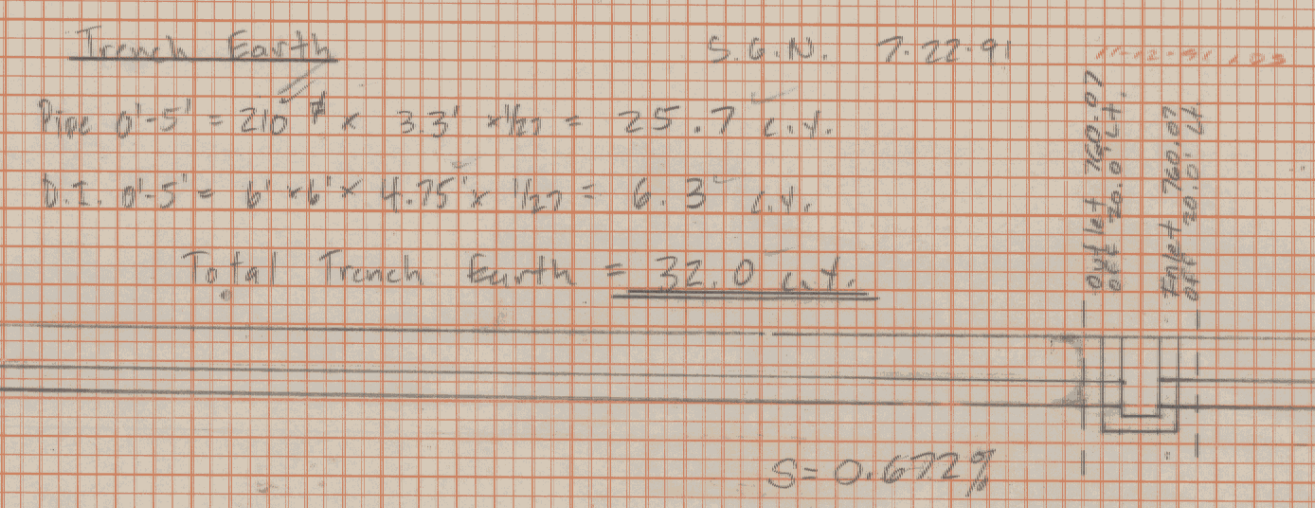 Trench Earth
S.G.N. 7-22-91
11-12-91
Pipe 0'-5' = 210 × 3.3' × 1/27 = 25.7 c.y.
D.I. 0'-5' = 6' × 6' × 4.75' × 1/27 = 6.3 c.y.
Total Trench Earth = 32.0 c.y.
Outlet 760.07
Off 20.0' Lt.
Inlet 760.07
Off 20.0' Lt
S = 0.672%